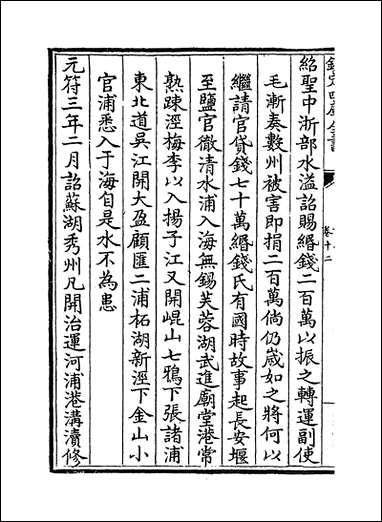 欽定四庫全書
卷十二
紹聖中浙部水溢詔賜緡錢二百萬以振之轉運副使
毛漸奏數州被害即捐二百萬倘仍歲如之將何以
繼請官貸錢七十萬緡錢氏有國時故事起長安堰
至鹽官徹清水浦入海無錫芙蓉湖武進廟堂港常
熟疎涇梅李以入揚子江又開崐山七鴉下張諸浦
東北道吳江開大盈顧匯二浦柘湖新涇下金山小
官浦悉入于海自是水不為患
元符三年二月詔蘇湖秀州凡開治運河浦港溝瀆修